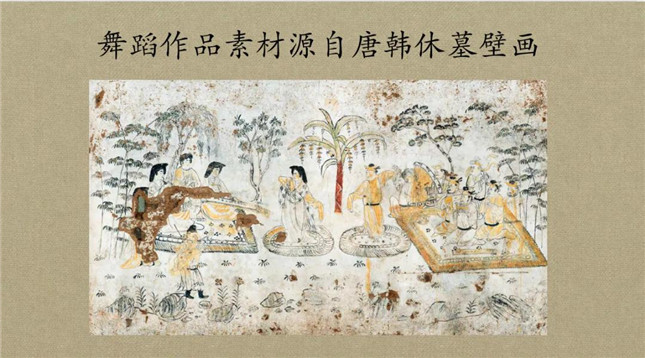 舞蹈作品素材源自唐韩休墓壁画